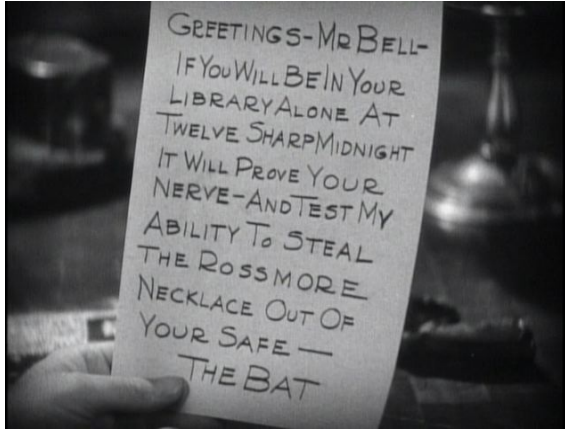 GREETINGS-MR BELL-
IF YOU WILL BE IN YOUR
LIBRARY ALONE AT
TWELVE SHARP MIDNIGHT
IT WILL PROVE YOUR
NERVE-AND TEST MY
ABILITY TO STEAL
THE ROSSMORE
NECKLACE OUT OF
YOUR SAFE —
THE BAT